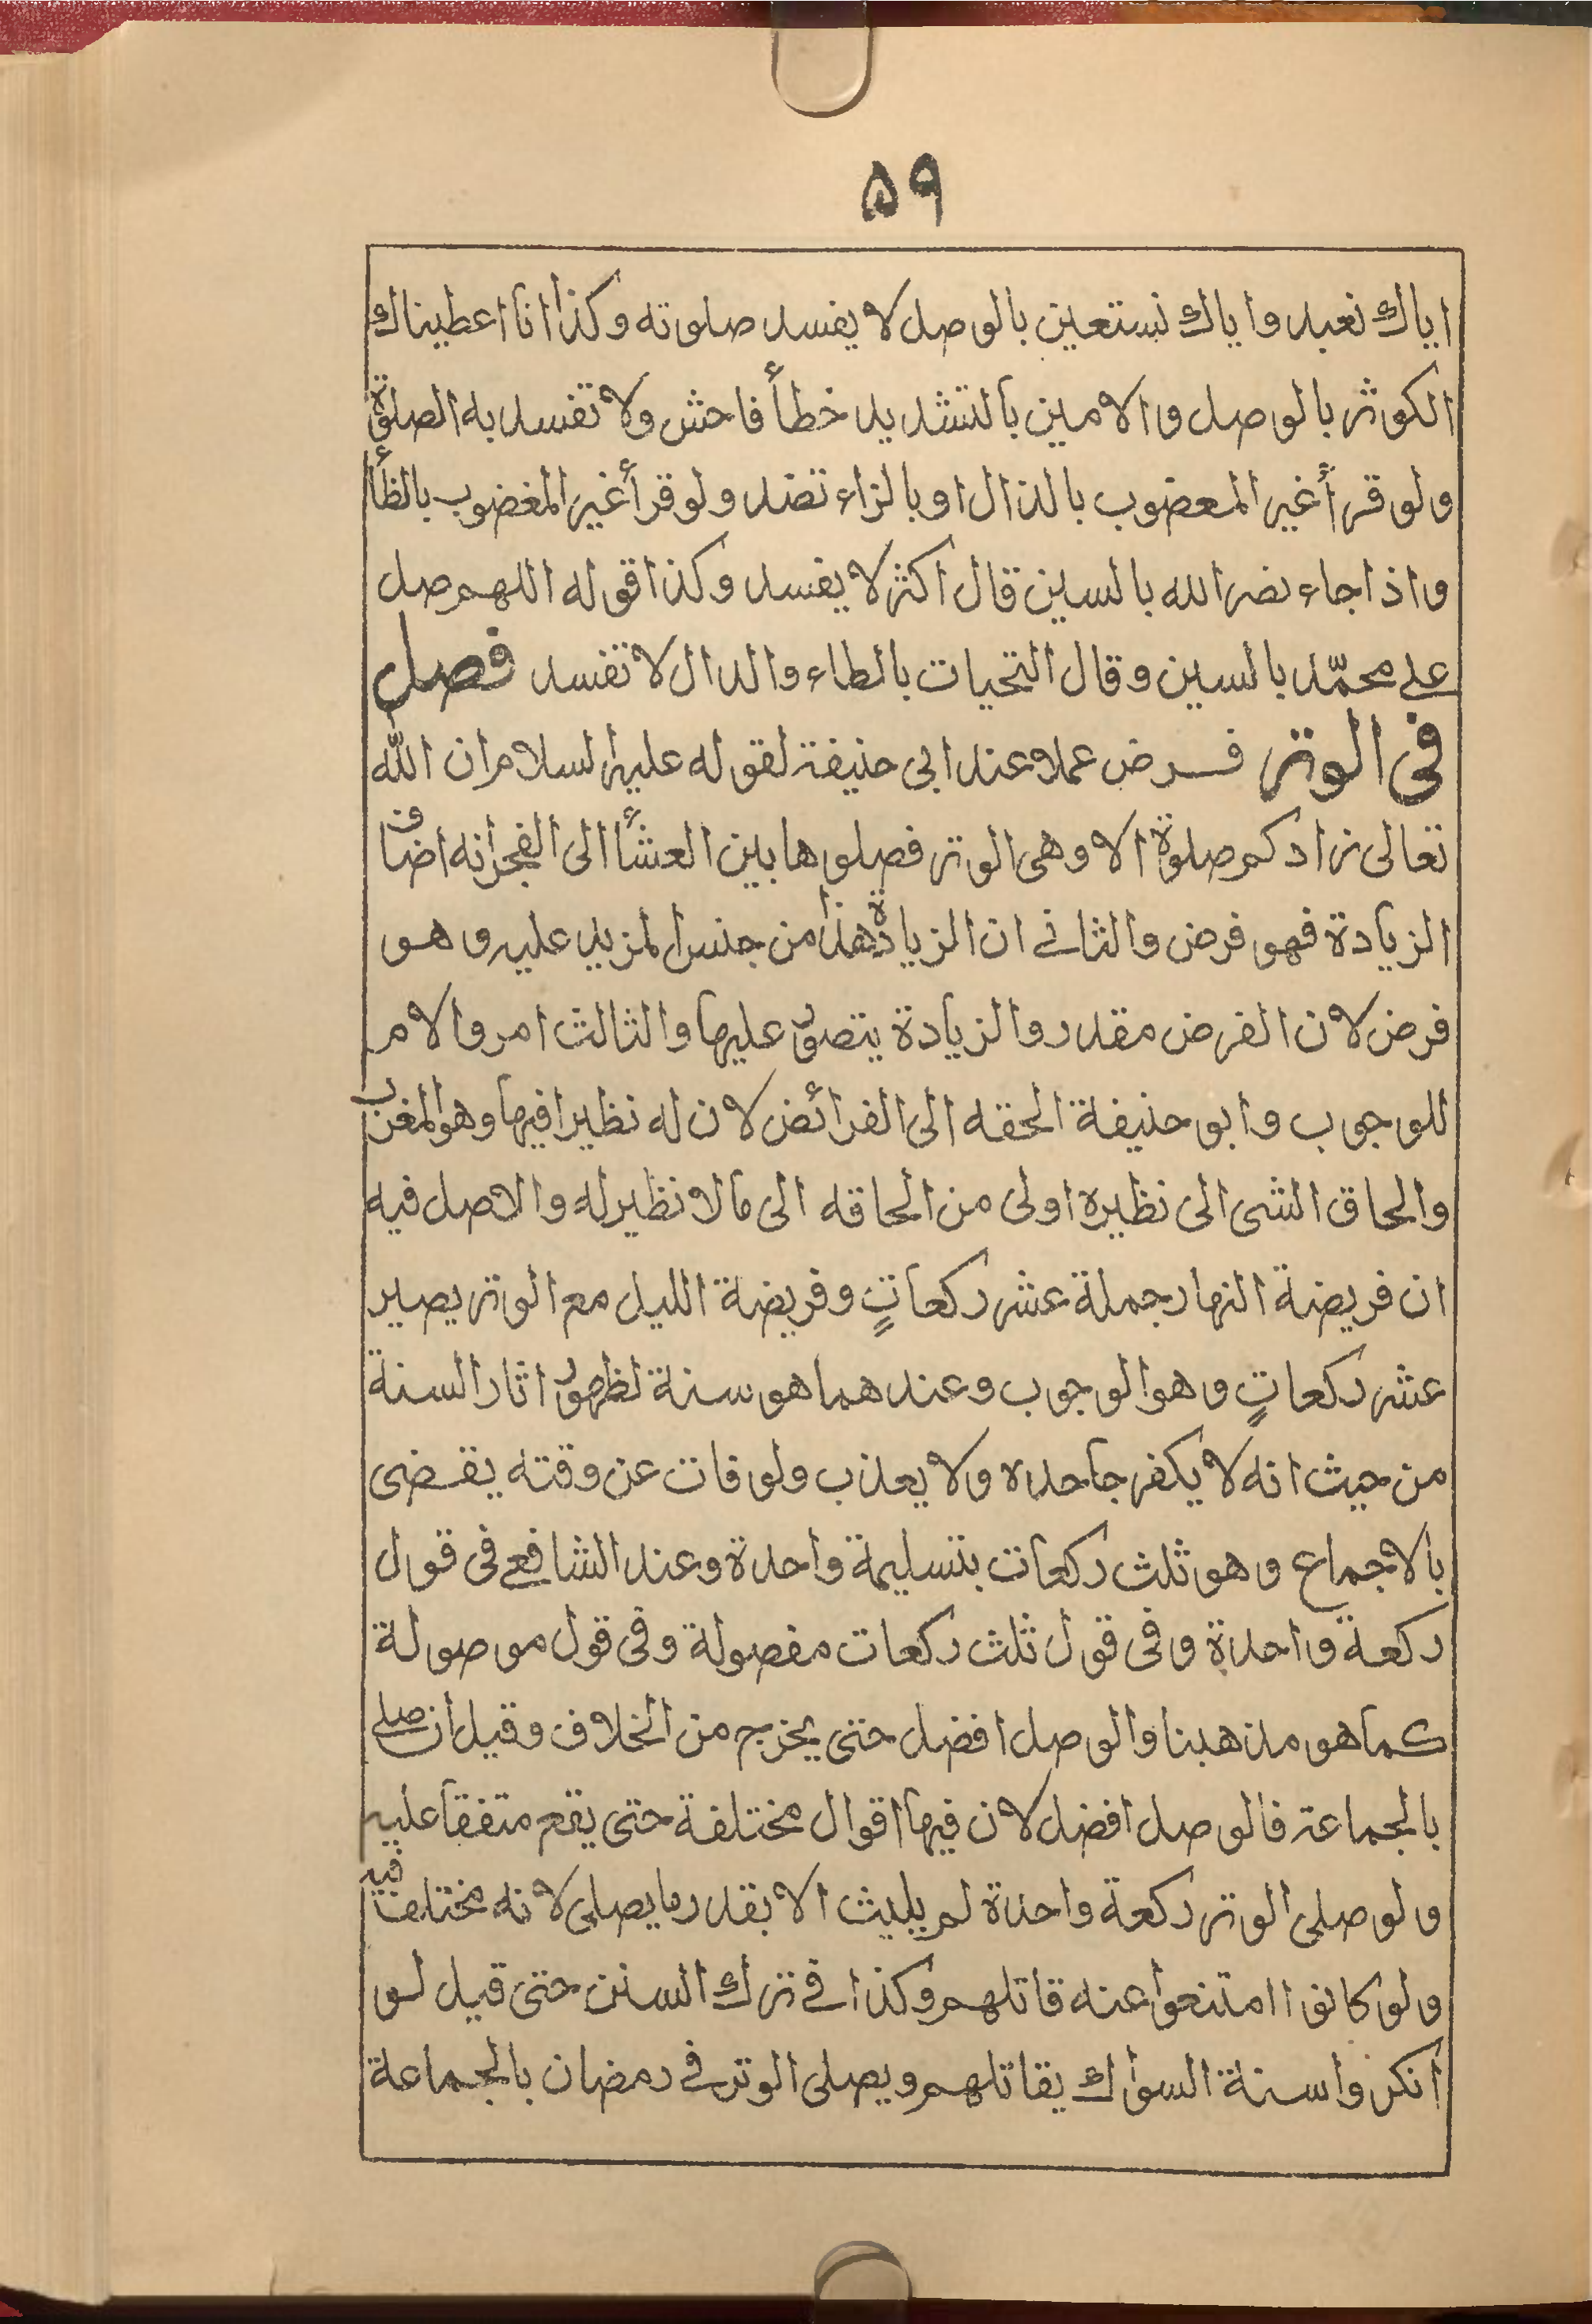 ۵۹
اياك نعبد واياك نستعين بالوصل لا يفسد صلوته وكذا انا اعطيناك
الكوثر بالوصل والامين بالتشديد خطأ فاحش ولا تفسد به الصلوة
ولو قرأ غير المعضوب بالذال او بالزاء تفسد ولو قرأ غير المغضوب بالظاء
واذا جاء نصر الله بالسين قال اكثر لا يفسد وكذا قوله اللهم صل
على محمّد بالسين وقال التحيات بالطاء والدال لا تفسد فصل
فى الوتر فرض عملا عند ابى حنيفة لقوله عليه السلام ان الله
تعالى زادكم صلوة الا وهى الوتر فصلوها بين العشاء الى الفجر انه اضاف
الزيادة فهو فرض والثانى ان الزيادة هذا من جنس المزيد عليه وهو
فرض لان الفرض مقدر والزيادة يتصور عليها والثالث امر والامر
للوجوب وابو حنيفة الحقه الى الفرائض لان له نظيرا فيها وهو المغرب
والحاق الشى الى نظيره اولى من الحاقه الى ما لا نظير له والاصل فيه
ان فريضة النهار جملة عشر ركعاتٍ وفريضة الليل مع الوتر يصير
عشر ركعاتٍ وهو الوجوب وعندهما هو سنة لظهور اثار السنة
من حيث انه لا يكفر جاحده ولا يعذب ولو فات عن وقته يقضى
بالاجماع وهو ثلث ركعات بتسليمة واحدة وعند الشافعى فى قول
ركعة واحدة وفى قول ثلث ركعات مفصولة وفى قول موصولة
كما هو مذهبنا والوصل افضل حتى يخرج من الخلاف وقيل ان صلى
بالجماعة فالوصل افضل لان فيها اقوال مختلفة حتى يقع متفقا عليه
ولو صلى الوتر ركعة واحدة لم يلبث الا بقدر ما يصلى لانه مختلف فيه
ولو كانوا امتنعوا عنه قاتلهم وكذا فى ترك السنن حتى قيل لو
انكروا سنة السواك يقاتلهم ويصلى الوتر فى رمضان بالجماعة